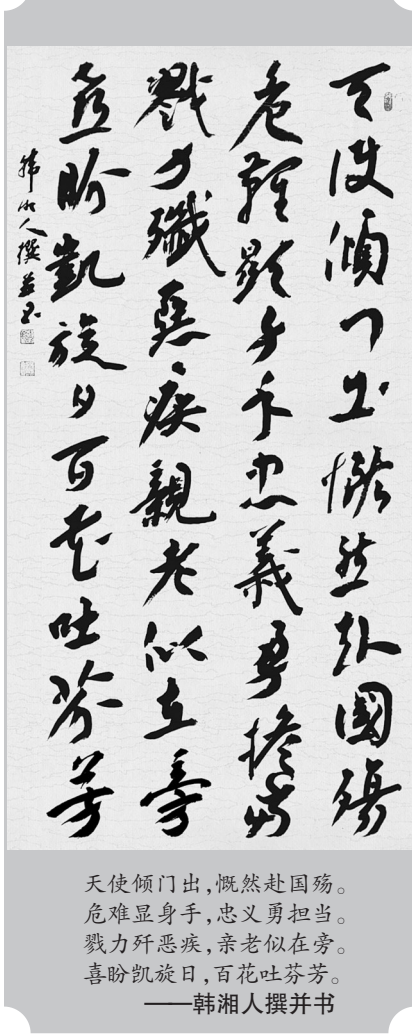 天使傾門出慨然赴國殤
危難顯身手忠義勇擔當
戮力殲惡疾親老似在旁
喜盼凱旋日百花吐芬芳
韩湘人撰并书
天使倾门出,慨然赴国殇。
危难显身手,忠义勇担当。
戮力歼恶疾,亲老似在旁。
喜盼凯旋日,百花吐芬芳。
——韩湘人撰并书